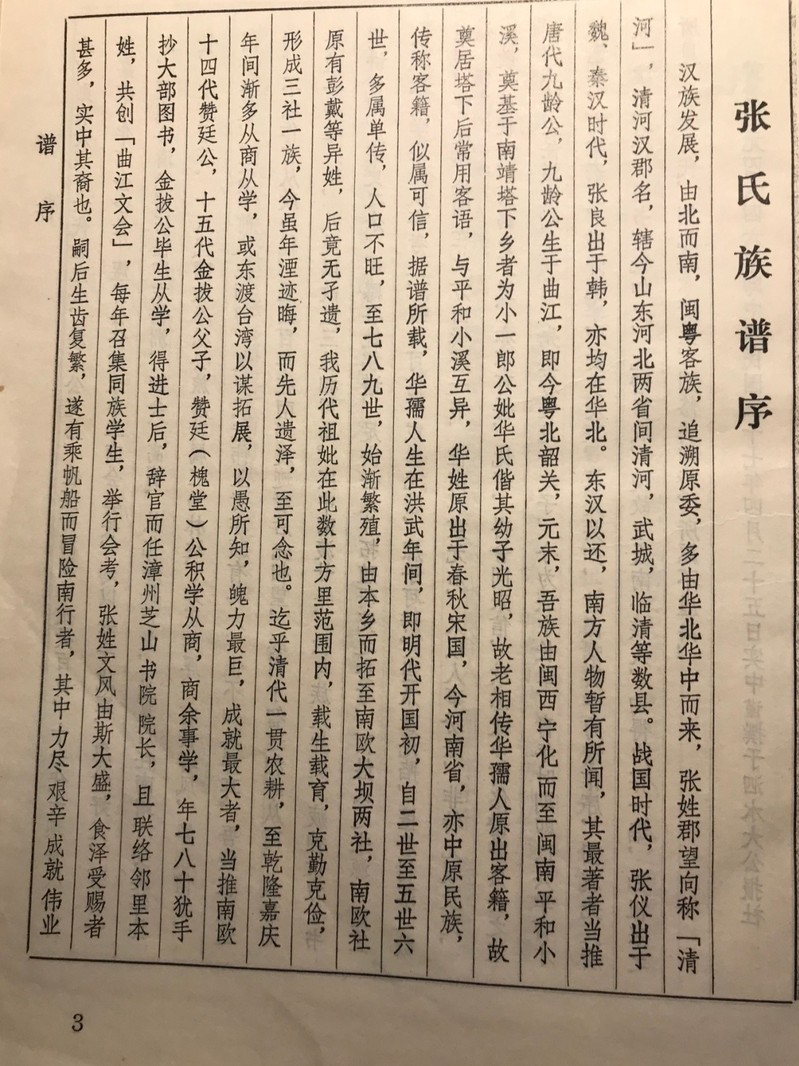 张氏族谱序
汉族发展，由北而南，闽粤客族，追溯原委，多由华北华中而来，张姓郡望向称「清
河」，清河汉郡名，辖今山东河北两省间清河，武城，临清等数县。战国时代，张仪出于
魏，秦汉时代，张良出于韩，亦均在华北。东汉以还，南方人物暂有所闻，其最著者当推
唐代九龄公，九龄公生于曲江，即今粤北韶关，元末，吾族由闽西宁化而至闽南平和小
溪，奠基于南靖塔下乡者为小一郎公妣华氏偕其幼子光昭，故老相传华孺人原出客籍，故
奠居塔下后常用客语，与平和小溪互异，华姓原出于春秋宋国，今河南省，亦中原民族，
传称客籍，似属可信，据谱所载，华孺人生在洪武年间，即明代开国初，自二世至五世六
世，多属单传，人口不旺，至七八九世，始渐繁殖，由本乡而拓至南欧大坝两社，南欧社
原有彭戴等异姓，后竟无孑遗，我历代祖妣在此数十方里范围内，载生载育，克勤克俭，
形成三社一族，今虽年湮迹晦，而先人遗泽，至可念也。迄乎清代一贯农耕，至乾隆嘉庆
年间渐多从商从学，或东渡台湾以谋拓展，以愚所知，魄力最巨，成就最大者，当推南欧
十四代赞廷公，十五代金拔公父子，赞廷（槐堂）公积学从商，商余事学，年七八十犹手
抄大部图书，金拔公毕生从学，得进士后，辞官而任漳州芝山书院院长，且联络邻里本
姓，共创「曲江文会」，每年召集同族学生，举行会考，张姓文风由斯大盛，食泽受赐者
甚多，实中其裔也。嗣后生齿复繁，遂有乘帆船而冒险南行者，其中力尽艰辛成就伟业
谱序
3